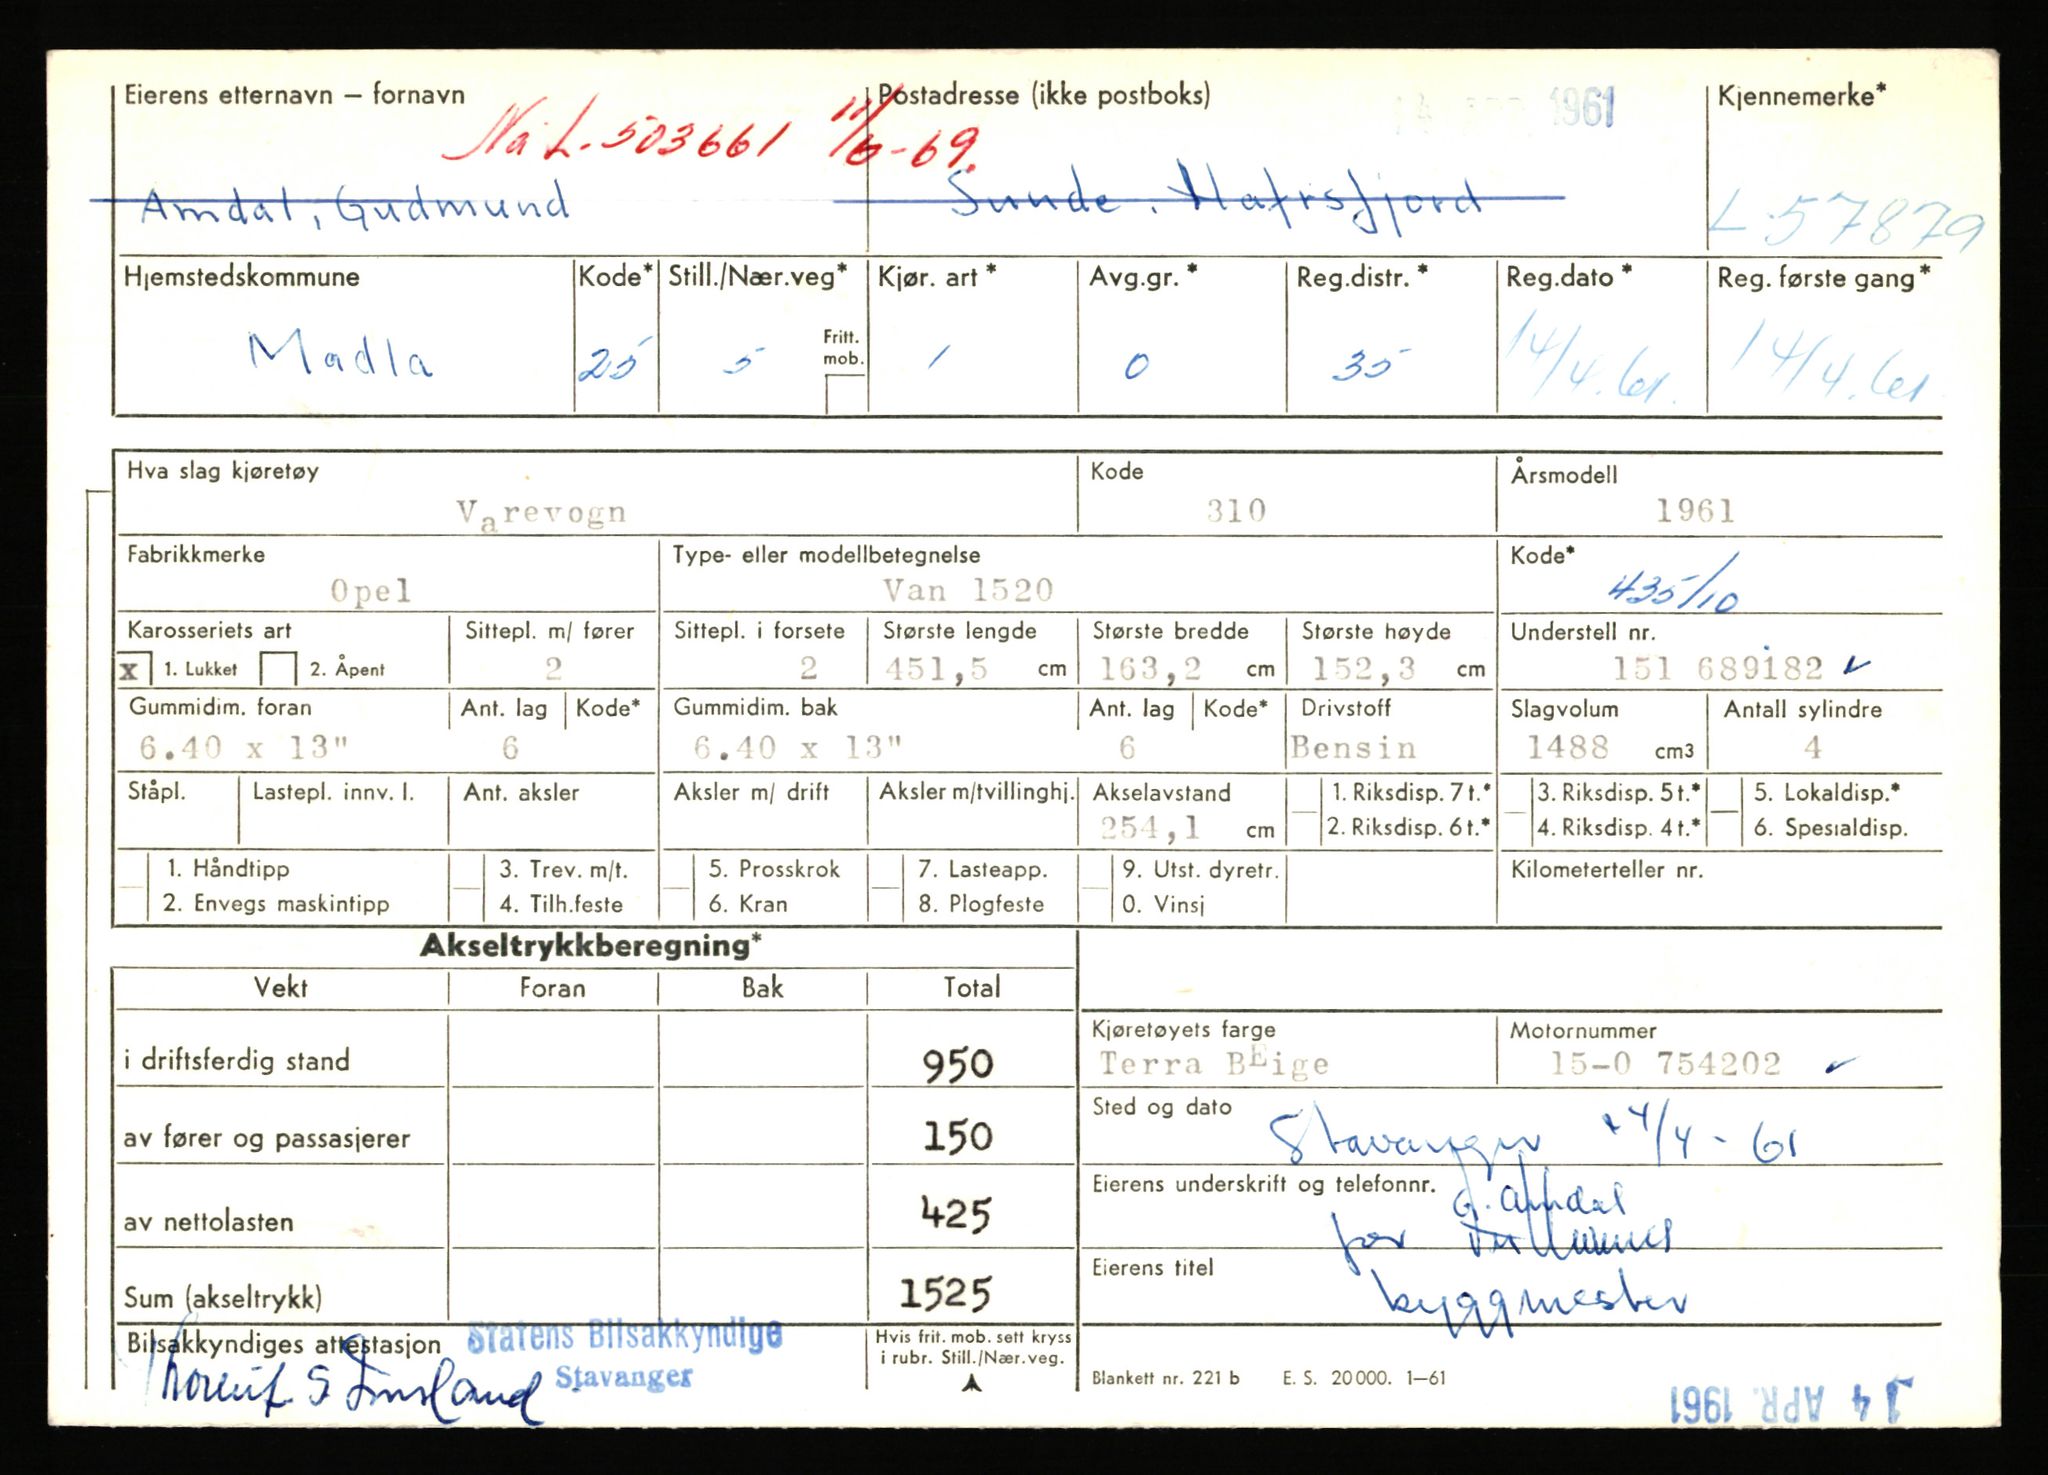 Eierens etternavn – fornavn
Postadresse (ikke postboks)
1961
Kjennemerke*
Nå L-503661 11/6-69.
Amdal, Gudmund
Sunde. Hafrsfjord
L-57879
Hjemstedskommune Kode* Still./Nær.veg* Kjør. art* Avg.gr.* Reg.distr.* Reg.dato* Reg. første gang*
Fritt. mob.
Madla 25 5 1 0 35 14/4.61. 14/4.61
Hva slag kjøretøy Kode Årsmodell
Varevogn 310 1961
Fabrikkmerke Type- eller modellbetegnelse Kode*
Opel Van 1520 435/10
Karosseriets art Sittepl. m/ fører Sittepl. i forsete Største lengde Største bredde Største høyde Understell nr.
x 1. Lukket 2. Åpent 2 2 451,5 cm 163,2 cm 152,3 cm 151 689182
Gummidim. foran Ant. lag Kode* Gummidim. bak Ant. lag Kode* Drivstoff Slagvolum Antall sylindre
6.40 x 13" 6 6.40 x 13" 6 Bensin 1488 cm3 4
Ståpl. Lastepl. innv. l. Ant. aksler Aksler m/ drift Aksler m/tvillinghj. Akselavstand 1. Riksdisp. 7 t.* 3. Riksdisp. 5 t.* 5. Lokaldisp.*
254,1 cm 2. Riksdisp. 6 t.* 4. Riksdisp. 4 t.* 6. Spesialdisp.
1. Håndtipp 3. Trev. m/t. 5. Prosskrok 7. Lasteapp. 9. Utst. dyretr. Kilometerteller nr.
2. Envegs maskintipp 4. Tilh.feste 6. Kran 8. Plogfeste 0. Vinsj
Akseltrykkberegning*
Vekt Foran Bak Total
i driftsferdig stand 950
av fører og passasjerer 150
av nettolasten 425
Sum (akseltrykk) 1525
Kjøretøyets farge Motornummer
Terra BEige 15-0 754202
Sted og dato
Stavanger 14/4-61
Eierens underskrift og telefonnr.
G. Amdal
for
Eierens titel
byggmester
Bilsakkyndiges attestasjon
Statens Bilsakkyndige
Stavanger
Hvis frit. mob. sett kryss
i rubr. Still./Nær.veg.
Blankett nr. 221 b E. S. 20 000. 1–61
14 APR. 1961